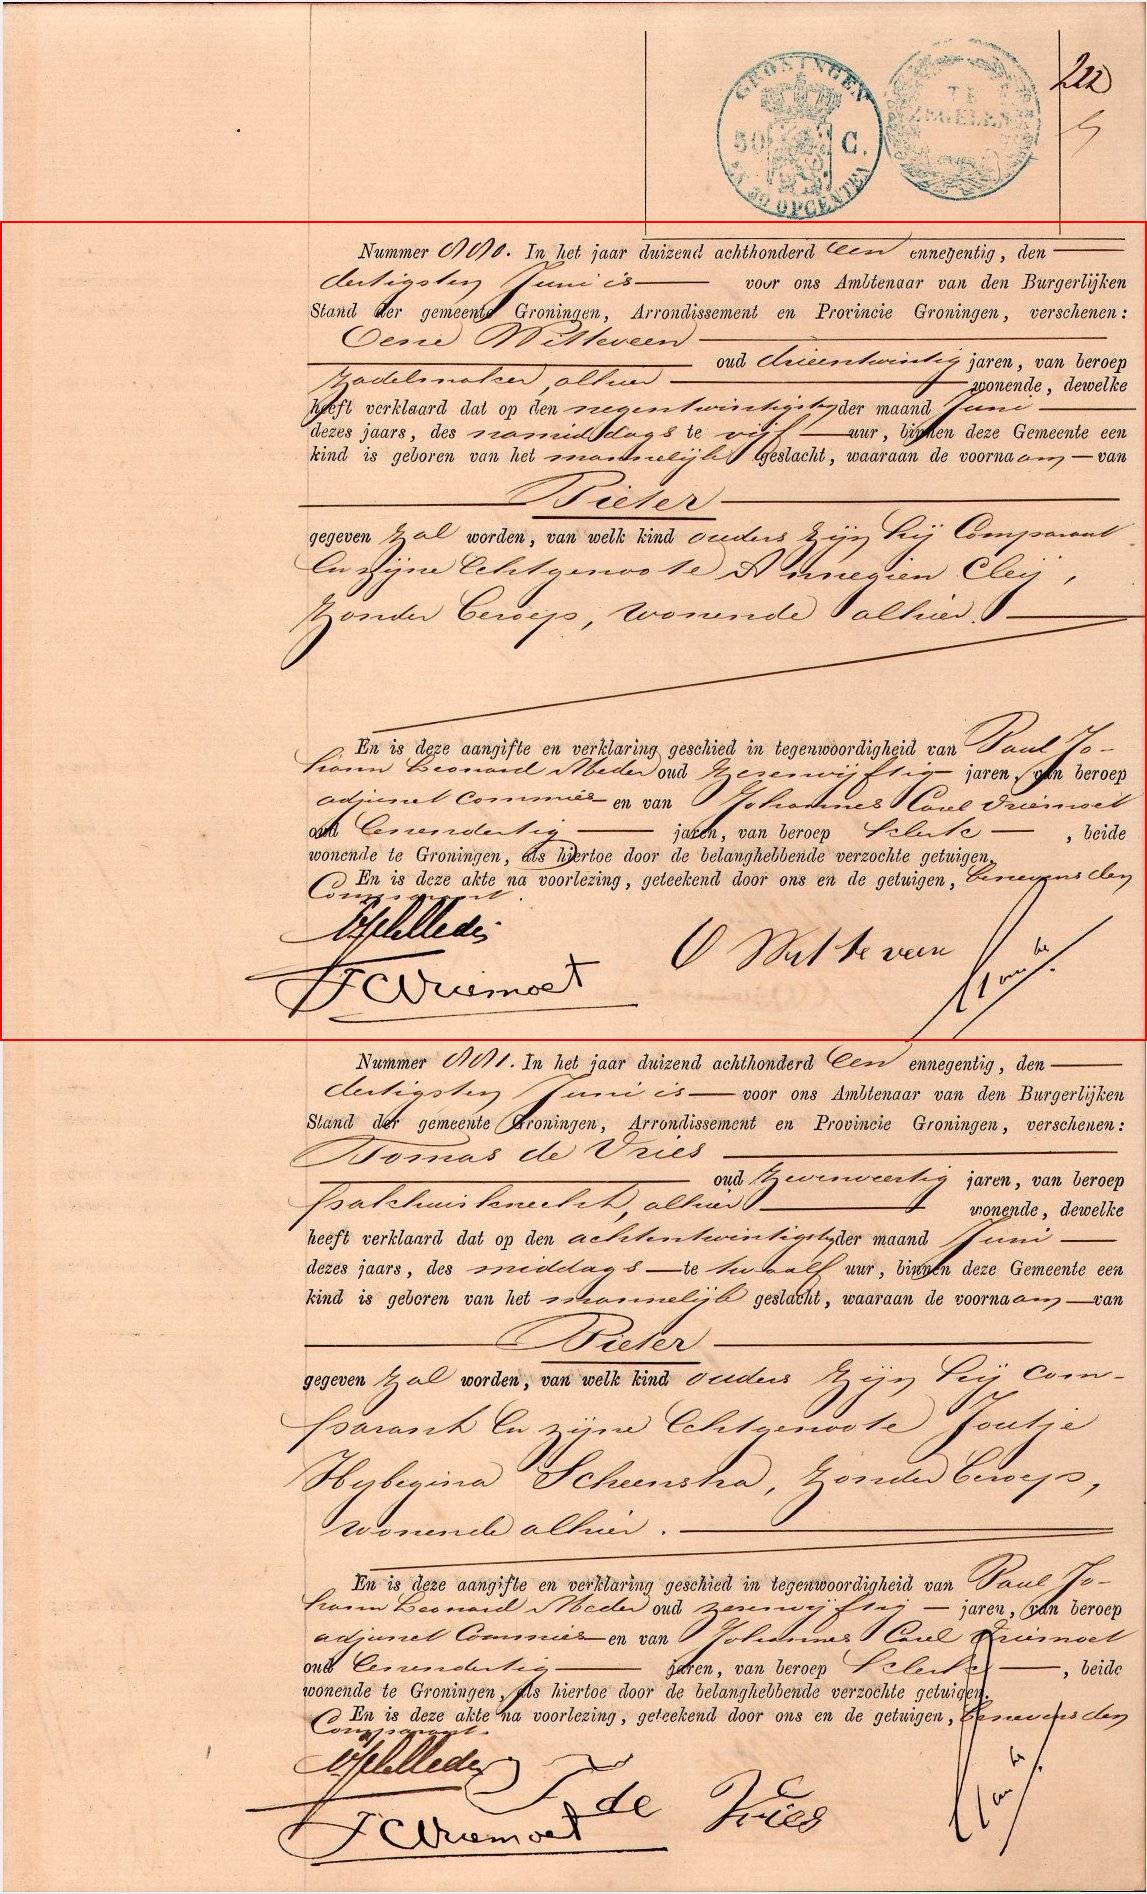 GRONINGEN
50 C.
EN 30 OPCENTEN
TE
ZEGELEN
222
Nummer 880. In het jaar duizend achthonderd een ennegentig, den
dertigsten Juni is voor ons Ambtenaar van den Burgerlijken
Stand der gemeente Groningen, Arrondissement en Provincie Groningen, verschenen:
Oene Witteveen
oud drieentwintig jaren, van beroep
zadelmaker, alhier wonende, dewelke
heeft verklaard dat op den negentwintigsten der maand Juni
dezes jaars, des namiddags te vijf uur, binnen deze Gemeente een
kind is geboren van het mannelijk geslacht, waaraan de voornaam van
Pieter
gegeven zal worden, van welk kind ouders zijn hij Comparant
en zijne Echtgenoote Annegien Cleij,
zonder beroep, wonende alhier.
En is deze aangifte en verklaring geschied in tegenwoordigheid van Paul Jo-
hann Leonard Meder oud zesenvijftig jaren, van beroep
adjunct commies en van Johannes Carel Vriemoet
oud eenendertig jaren, van beroep klerk, beide
wonende te Groningen, als hiertoe door de belanghebbende verzochte getuigen.
En is deze akte na voorlezing, geteekend door ons en de getuigen, benevens den
Comparant.
Meder
O Witteveen
J C Vriemoet
Nummer 881. In het jaar duizend achthonderd een ennegentig, den
dertigsten Juni is voor ons Ambtenaar van den Burgerlijken
Stand der gemeente Groningen, Arrondissement en Provincie Groningen, verschenen:
Tomas de Vries
oud zevenveertig jaren, van beroep
pakhuisknecht, alhier wonende, dewelke
heeft verklaard dat op den achtentwintigsten der maand Juni
dezes jaars, des middags te twaalf uur, binnen deze Gemeente een
kind is geboren van het mannelijk geslacht, waaraan de voornaam van
Pieter
gegeven zal worden, van welk kind ouders zijn hij com-
parant en zijne Echtgenoote Joutje
Hybegina Scheenstra, zonder beroep,
wonende alhier.
En is deze aangifte en verklaring geschied in tegenwoordigheid van Paul Jo-
hann Leonard Meder oud zesenvijftig jaren, van beroep
adjunct Commies en van Johannes Carel Vriemoet
oud eenendertig jaren, van beroep klerk, beide
wonende te Groningen, als hiertoe door de belanghebbende verzochte getuigen.
En is deze akte na voorlezing, geteekend door ons en de getuigen, benevens den
Comparant.
Meder
T de Vries
J C Vriemoet